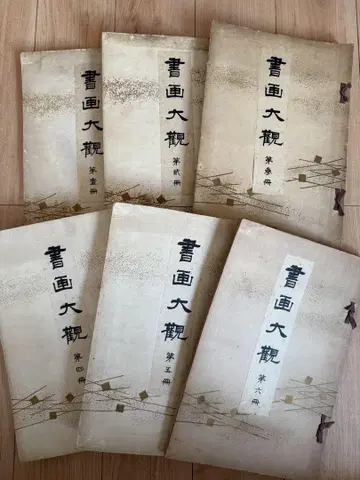 書画大觀
第壹冊
書画大觀
第貳冊
書画大觀
第參冊
書画大觀
第四冊
書画大觀
第五冊
書画大觀
第六冊